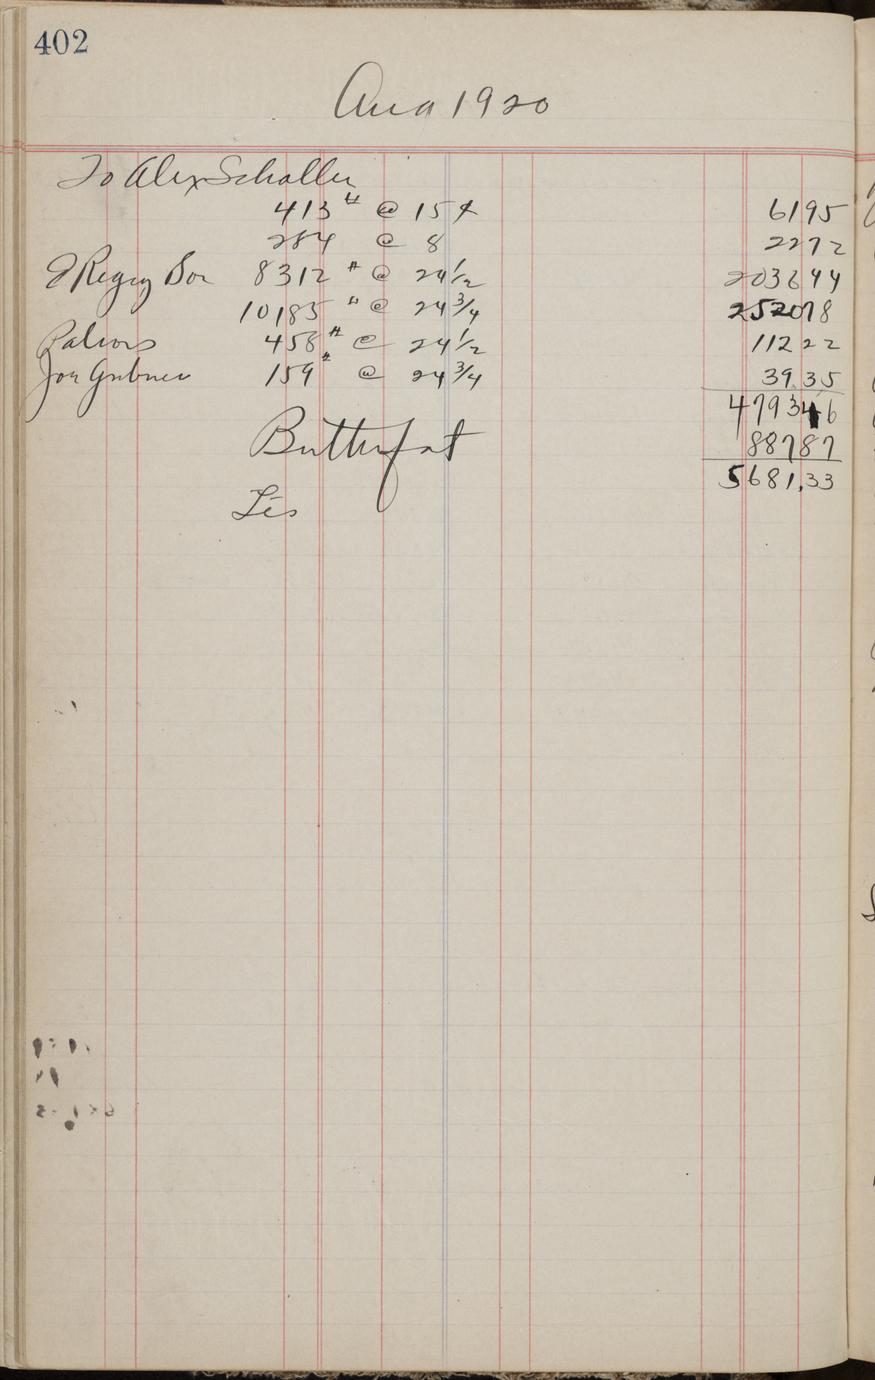 402
Aug 1920
To Alex Schaller
413 # @ 15 ¢ 6195
284 @ 8 2272
8312 # @ 24 1/2 203644
10185 " @ 24 3/4 252078
Patrons 458 # @ 24 1/2 11222
Joe Grubner 159 # @ 24 3/4 39.35
479346
Butterfat 88787
5681.33